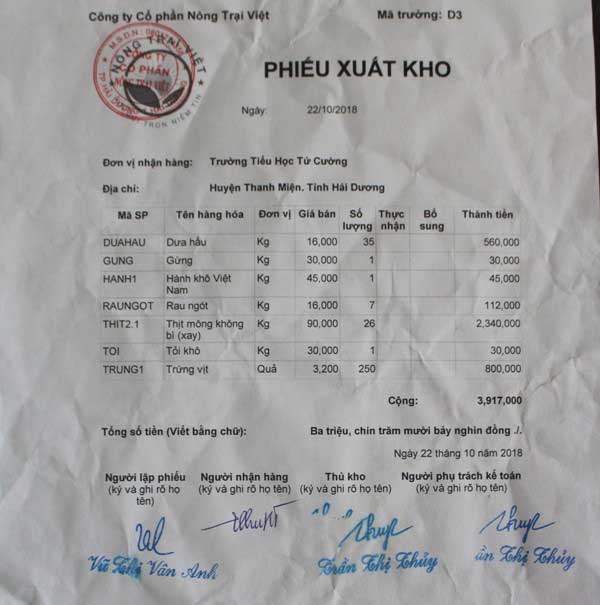 Công ty Cổ phần Nông Trại Việt Mã trường: D3
M.S.D.N
NÔNG TRẠI VIỆT
CÔNG TY
CỔ PHẦN
NÔNG TRẠI VIỆT
TRỌN NIỀM TIN
PHIẾU XUẤT KHO
Ngày: 22/10/2018
Đơn vị nhận hàng: Trường Tiểu Học Tứ Cường
Địa chỉ: Huyện Thanh Miện, Tỉnh Hải Dương
Mã SP Tên hàng hóa Đơn vị Giá bán Số lượng Thực nhận Bổ sung Thành tiền
DUAHAU Dưa hấu Kg 16,000 35 560,000
GUNG Gừng Kg 30,000 1 30,000
HANH1 Hành khô Việt Nam Kg 45,000 1 45,000
RAUNGOT Rau ngót Kg 16,000 7 112,000
THIT2.1 Thịt mông không bì (xay) Kg 90,000 26 2,340,000
TOI Tỏi khô Kg 30,000 1 30,000
TRUNG1 Trứng vịt Quả 3,200 250 800,000
Cộng: 3,917,000
Tổng số tiền (Viết bằng chữ): Ba triệu, chín trăm mười bảy nghìn đồng ./.
Ngày 22 tháng 10 năm 2018
Người lập phiếu Người nhận hàng Thủ kho Người phụ trách kế toán
(ký và ghi rõ họ tên) (ký và ghi rõ họ tên) (ký và ghi rõ họ tên) (ký và ghi rõ họ tên)
Vũ Thị Vân Anh Trần Thị Thủy ần Thị Thủy